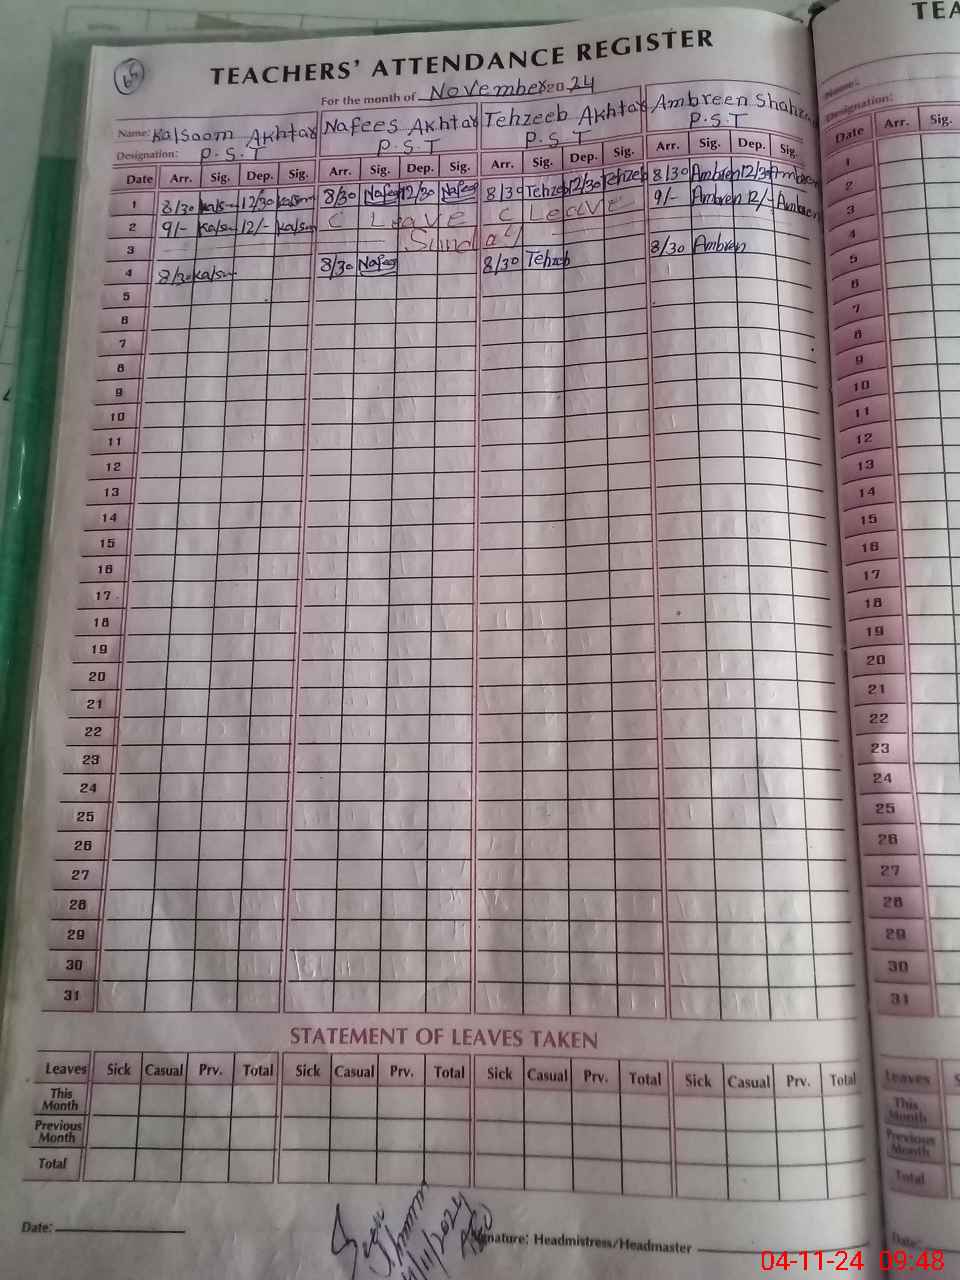 65
TEACHERS' ATTENDANCE REGISTER
For the month of November 2024
Name: Kalsoom Akhtar Nafees Akhtar Tehzeeb Akhtar Ambreen Shahza
Designation: P.S.T P.S.T P.S.T P.S.T
Date Arr. Sig. Dep. Sig. Arr. Sig. Dep. Sig. Arr. Sig. Dep. Sig. Arr. Sig. Dep. Sig.
1 8/30 Kalsm 12/30 Kalsm 8/30 Nafees 12/30 Nafees 8/30 Tehzeb 12/30 Tehzeb 8/30 Ambren 12/30 Ambren
2 9/- Kalsm 12/- Kalsm C Leave C Leave 9/- Ambren 12/- Ambren
3 Sunday
4 8/30 Kalsm 8/30 Nafees 8/30 Tehzeb 8/30 Ambren
5
6
7
8
9
10
11
12
13
14
15
16
17
18
19
20
21
22
23
24
25
26
27
28
29
30
31
STATEMENT OF LEAVES TAKEN
Leaves Sick Casual Prv. Total Sick Casual Prv. Total Sick Casual Prv. Total Sick Casual Prv. Total
This Month
Previous Month
Total
Seen
4/11/2024
AEO
Date:
Signature: Headmistress/Headmaster
TEA
Name:
Designation:
Date Arr. Sig.
1
2
3
4
5
6
7
8
9
10
11
12
13
14
15
16
17
18
19
20
21
22
23
24
25
26
27
28
29
30
31
Leaves S
This Month
Previous Month
Total
Date:
04-11-24 09:48